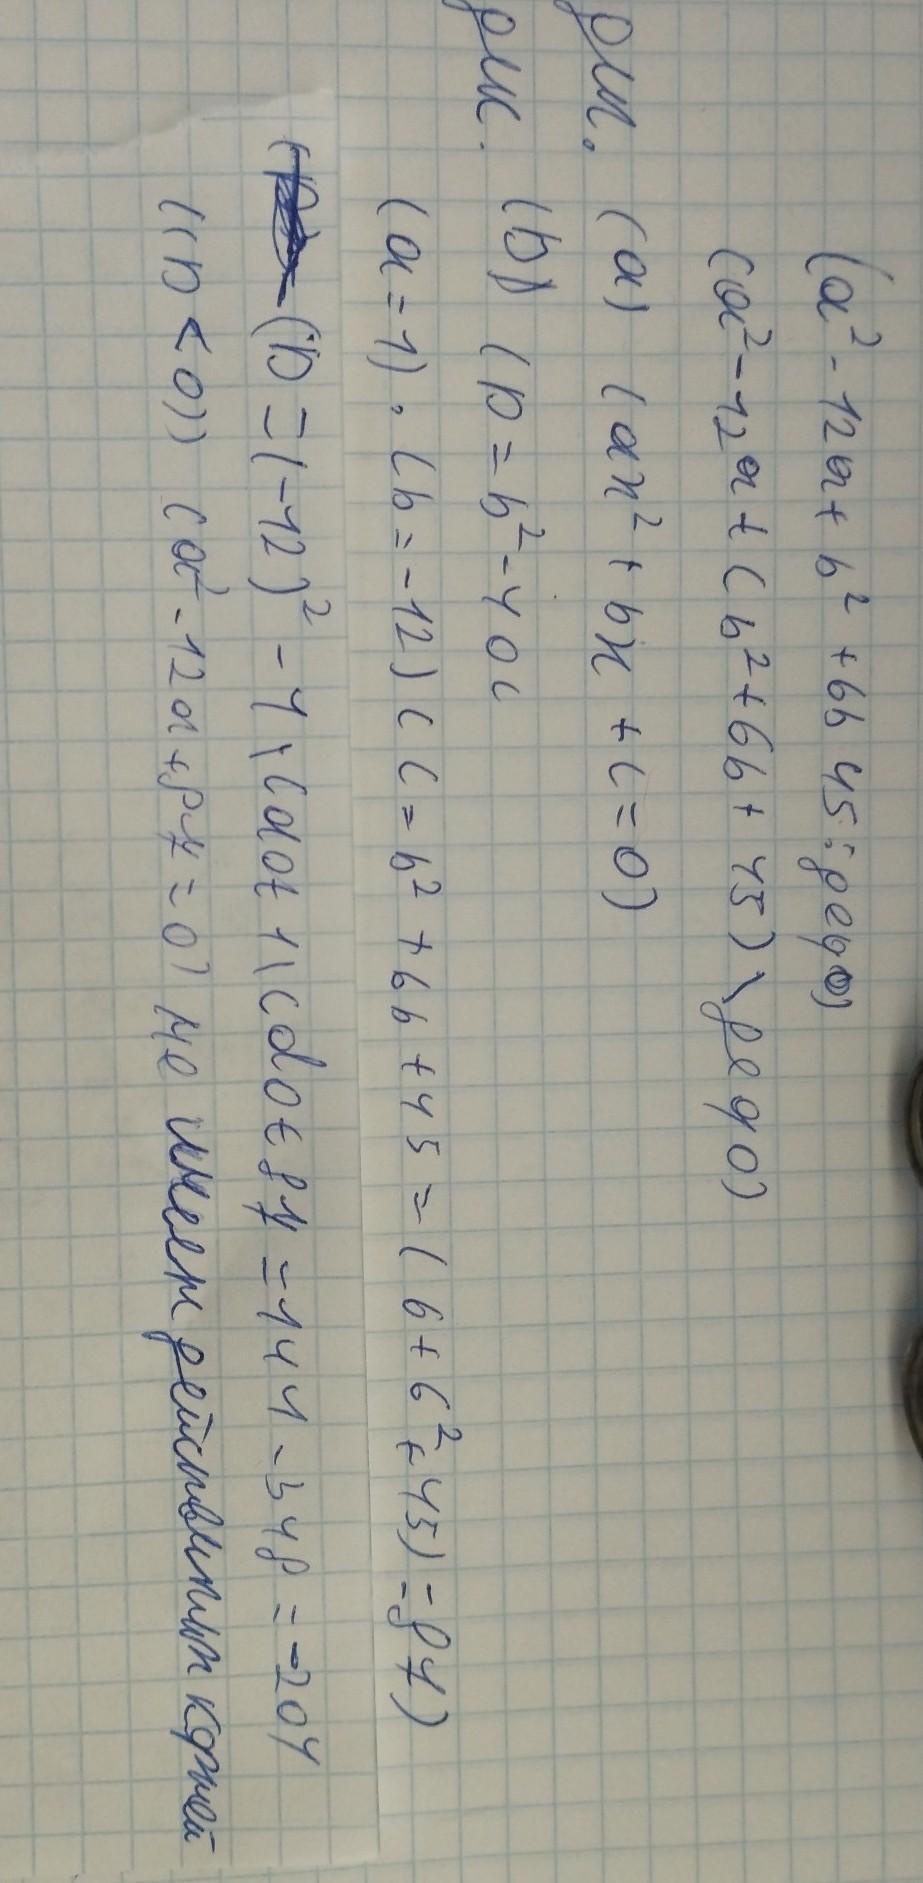 (a² - 12a + b² + 6b 45 :
(a² - 12a + (b² + 6b + 45) \
(a) (ax² + bx + c = 0)
(b) (D = b² - 4 0 c
(a = 1), (b = -12) ( c = b² + 6b + 45 = ( 6 + 6² + 45) = 87)
(D = (-12)² - 4 \cdot 1 \cdot 87 = 144 - 348 = -204
((D < 0)) (a² - 12a + 87 = 0) не имеет действитлн корней